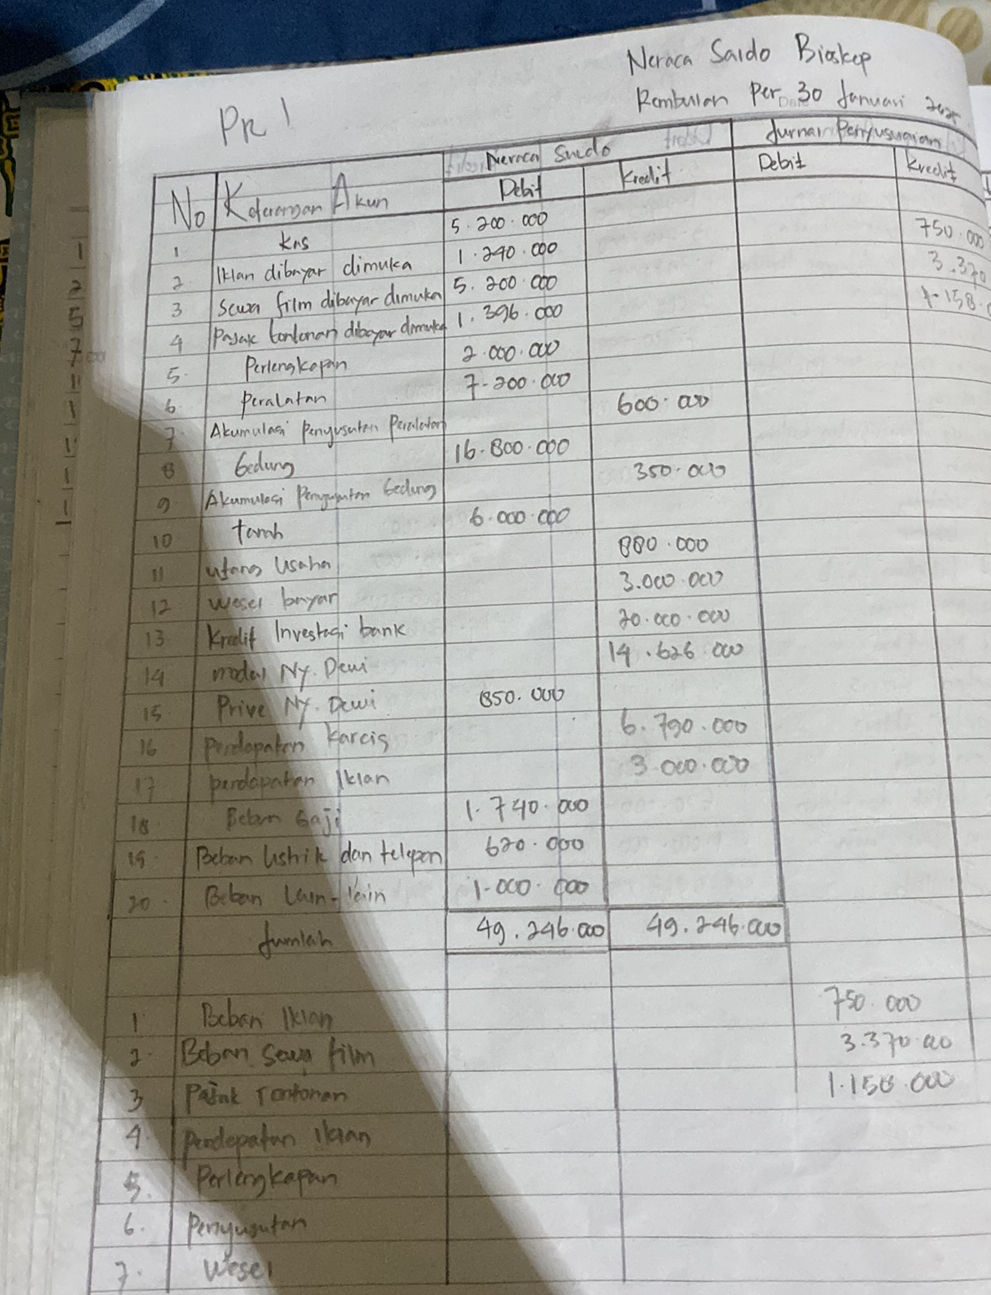 Neraca Saldo Bioskop
Rembulan Per 30 Januari 2025
PR 1
No Keterangan Akun Neraca Saldo Jurnal Penyesuaian
Debit Kredit Debit Kredit
1 Kas 5.200.000
2 Iklan dibayar dimuka 1.240.000 750.000
3 Sewa film dibayar dimuka 5.200.000 3.370
4 Pajak tontonan dibayar dimuka 1.396.000 1.158.0
5. Perlengkapan 2.000.000
6 Peralatan 7.200.000
7. Akumulasi Penyusutan Peralatan 600.000
8 Gedung 16.800.000
9 Akumulasi Penyusutan Gedung 350.000
10 tanah 6.000.000
11 utang Usaha 880.000
12 wesel bayar 3.000.000
13 Kredit Investasi bank 20.000.000
14 modal Ny. Dewi 14.626.000
15 Prive Ny. Dewi 850.000
16 Pendapatan Karcis 6.790.000
17 pendapatan Iklan 3.000.000
18 Beban Gaji 1.740.000
19 Beban listrik dan telepon 620.000
20 Beban Lain-lain 1.000.000
Jumlah 49.246.000 49.246.000
1 Beban Iklan 750.000
2. Beban Sewa film 3.370.000
3 Pajak Tontonan 1.158.000
4 Pendapatan Iklan
5. Perlengkapan
6. Penyusutan
7. Wesel